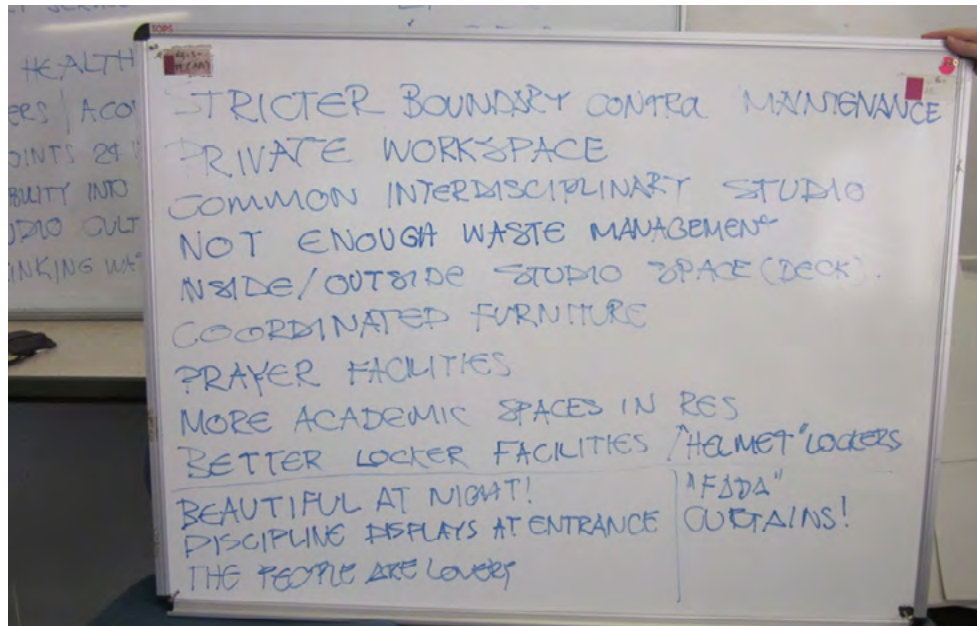 HEALTH
ACO
OINTS 24
BILITY INTO
UDIO CULT
INKING WA
STRICTER BOUNDARY CONTRA MAINTENANCE
PRIVATE WORKSPACE
COMMON INTERDISCIPLINARY STUDIO
NOT ENOUGH WASTE MANAGEMENT
INSIDE/OUTSIDE STUDIO SPACE (DECK).
COORDINATED FURNITURE
PRAYER FACILITIES
MORE ACADEMIC SPACES IN RES
BETTER LOCKER FACILITIES /"HELMET" LOCKERS
BEAUTIFUL AT NIGHT!
DISCIPLINE DISPLAYS AT ENTRANCE
THE PEOPLE ARE LOVERY
"FADA"
CURTAINS!